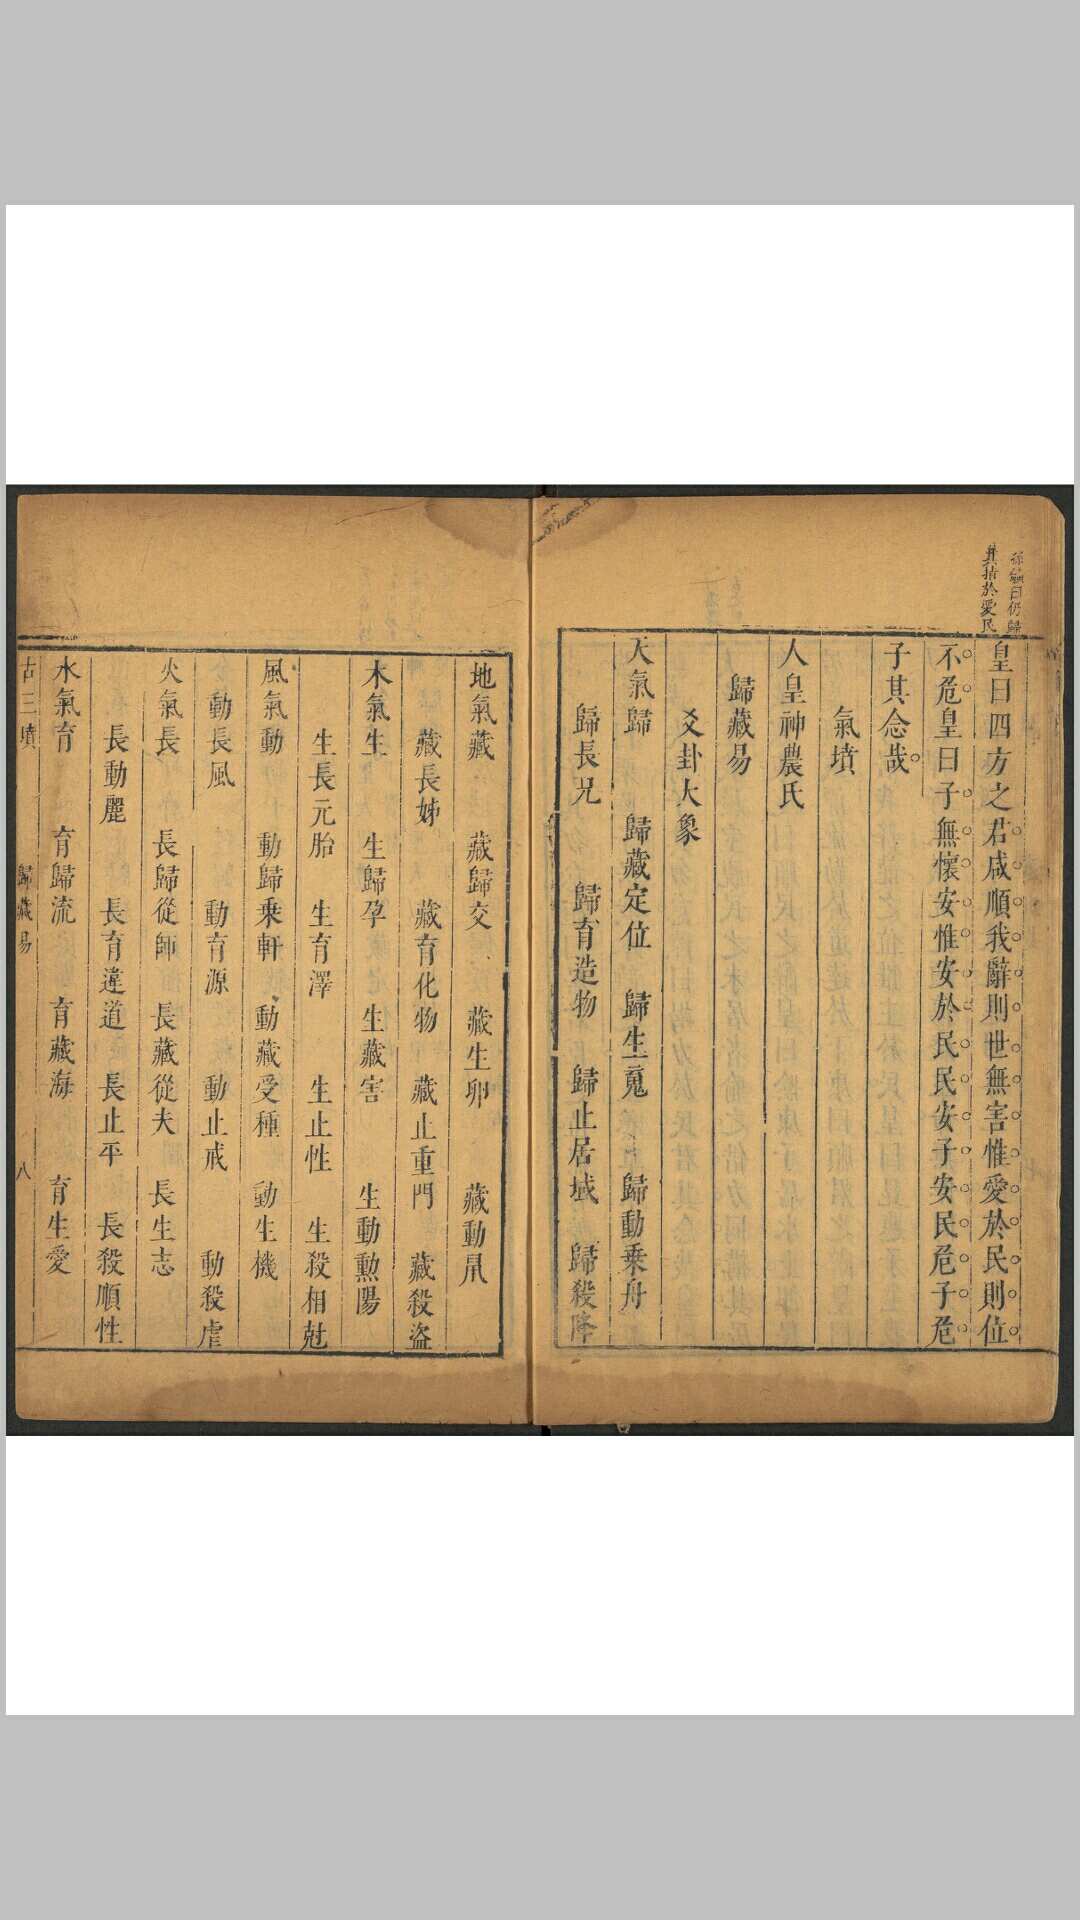 仍歸
其指於愛民
皇曰四方之君咸順我辭則世無害惟愛於民則位
不危皇曰子無懷安惟安於民民安子安民危子危
子其念哉
氣墳
人皇神農氏
歸藏易
爻卦大象
天氣歸 歸藏定位 歸生䰟 歸動乗舟
歸長兄 歸育造物 歸止居域 歸殺降
地氣藏 藏歸交 藏生卵 藏動鼠
藏長姊 藏育化物 藏止重門 藏殺盜
木氣生 生歸孕 生藏害 生動勲陽
生長元胎 生育澤 生止性 生殺相尅
風氣動 動歸乗軒 動藏受種 動生機
動長風 動育源 動止戒 動殺虐
火氣長 長歸從師 長藏從夫 長生志
長動麗 長育違道 長止平 長殺順性
水氣育 育歸流 育藏海 育生愛
古三墳 歸藏易 八